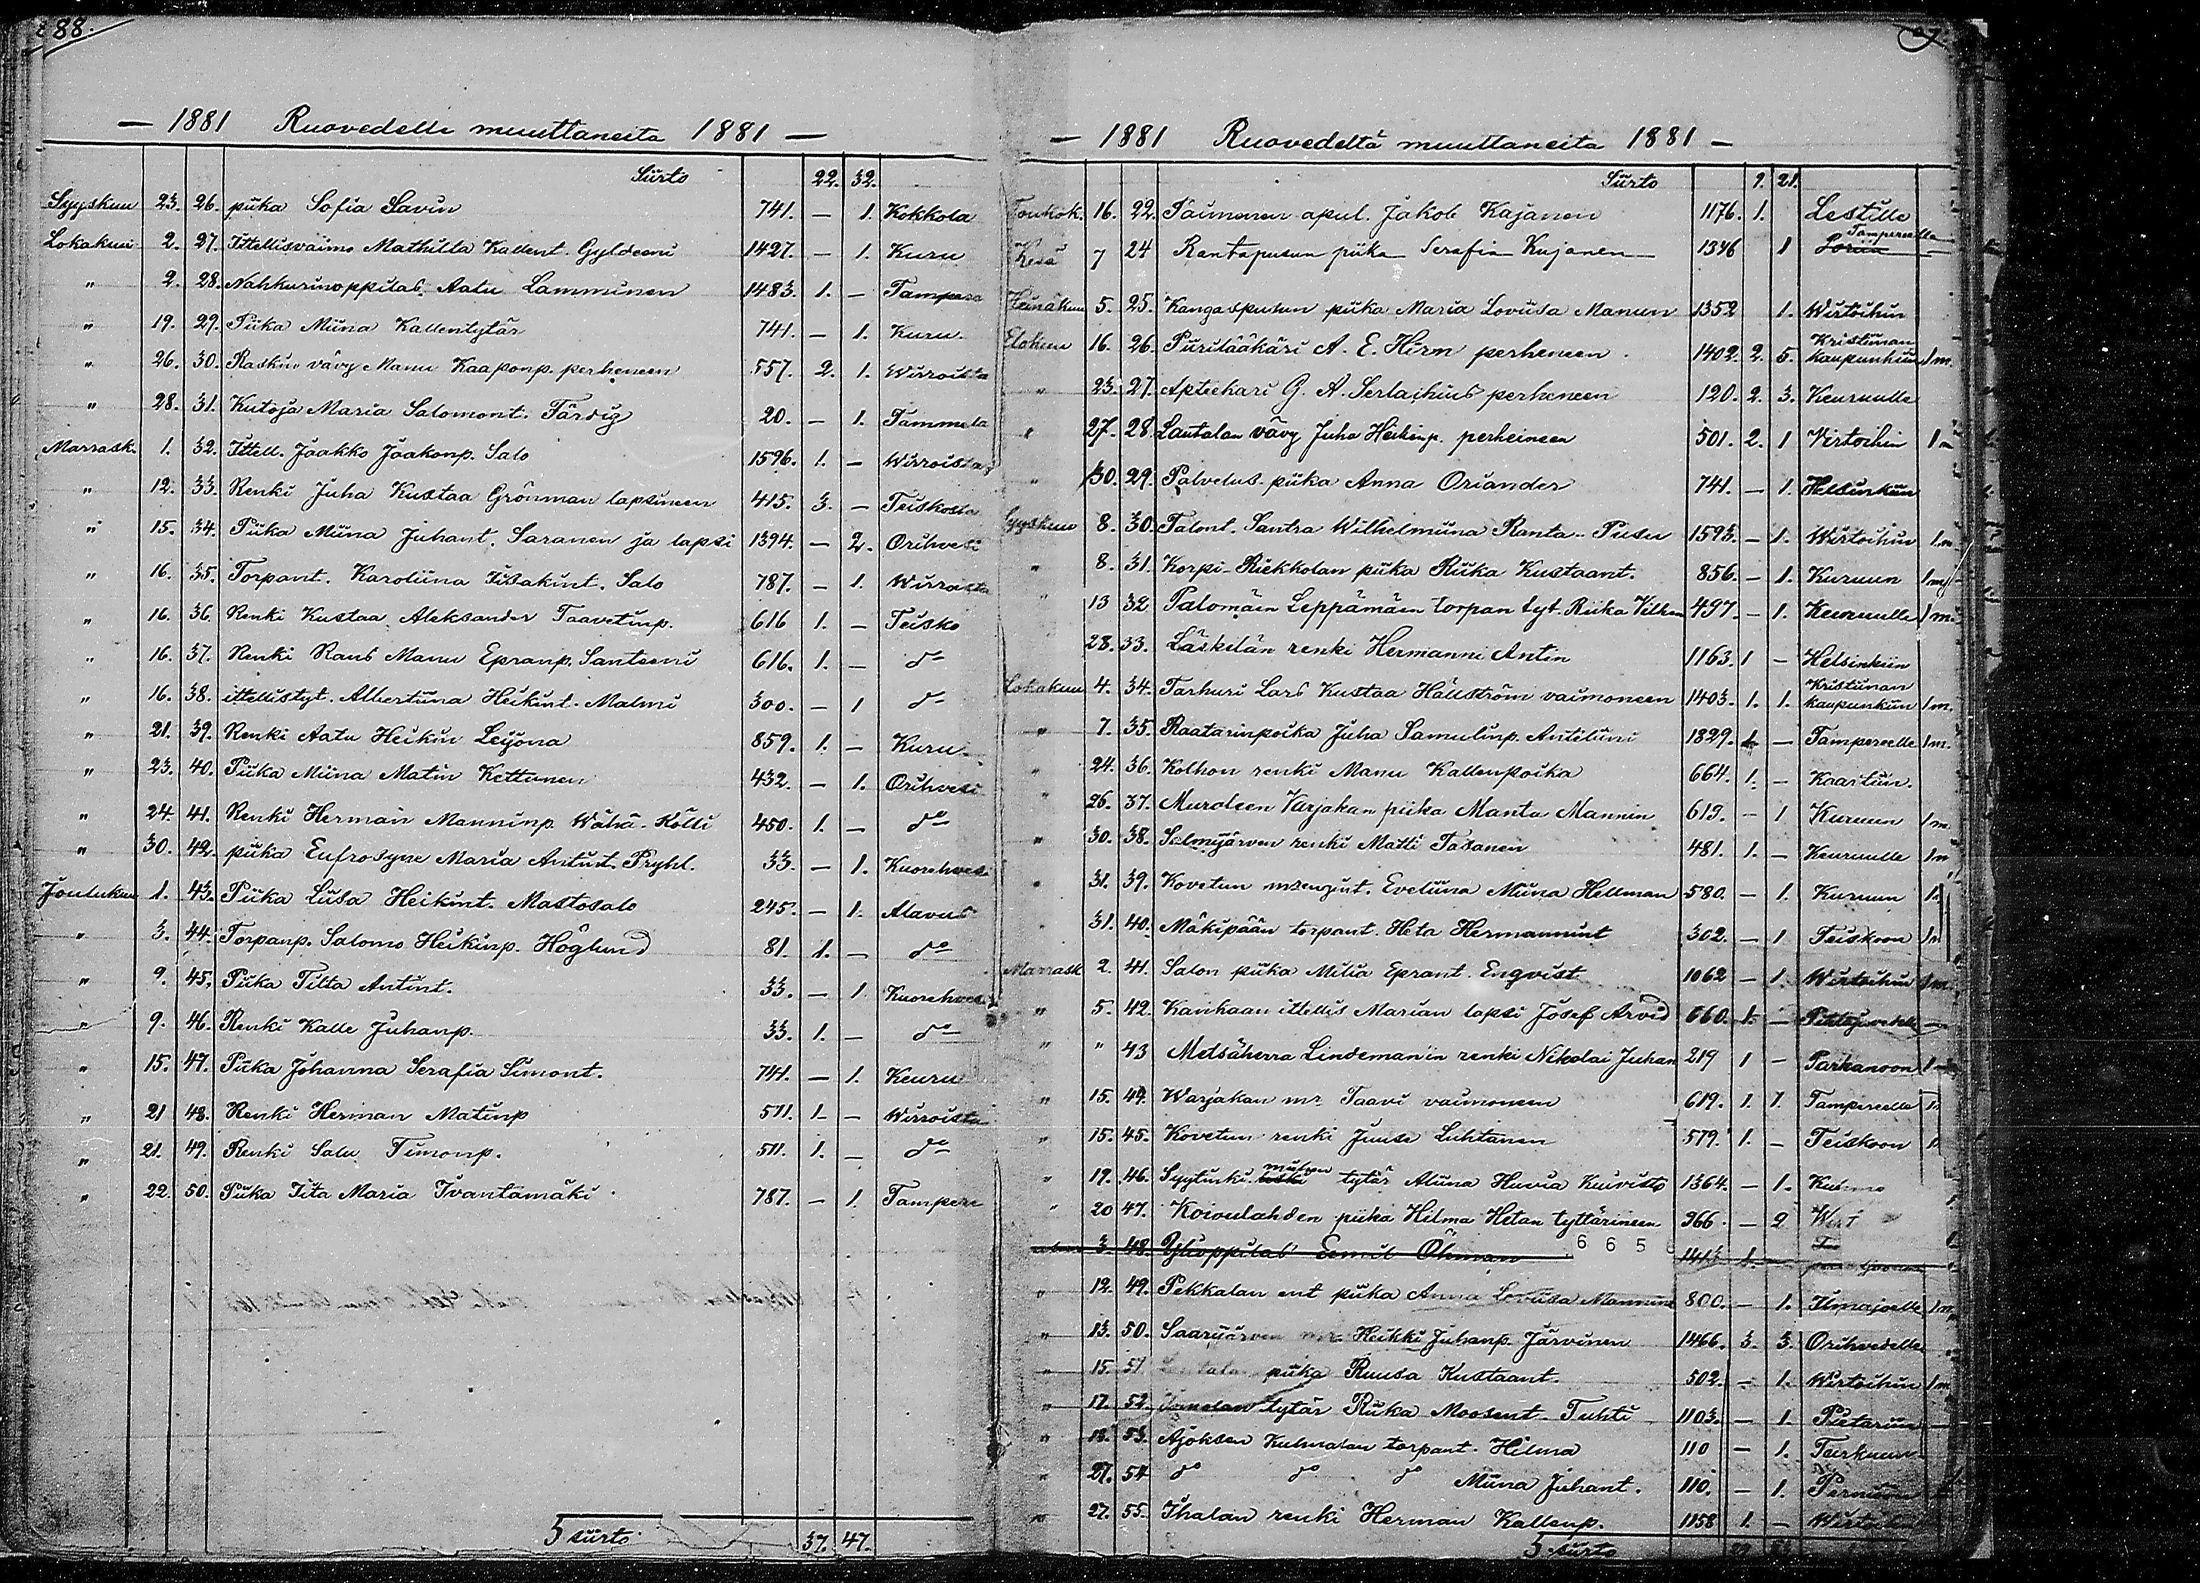 88.
— 1881 Ruovedelle muuttaneita 1881 —
Siirto 22. 32.
Syyskuu 23. 26. piika Sofia Savin 741. — 1. Kokkola
Lokakuu 2. 27. Ittellisvaimo Mathilta Kallent. Gyldeni 1427. — 1. Kuru
" 2. 28. Nahkurinoppilas Aatu Lamminen 1483. 1. — Tampere
" 19. 29. Piika Miina Kallentytär 741. — 1. Kuru.
" 26. 30. Raskin vävy Manu Kaaponp. perheneen 557. 2. 1. Wirroista
" 28. 31. Kutoja Maria Salomont. Färdig 20. — 1. Tammela
Marrask. 1. 32. Ittell. Jaakko Jaakonp. Salo 1596. 1. — Wirroista
" 12. 33. Renki Juha Kustaa Grönman lapsineen 415. 3. — Teiskosta
" 15. 34. Piika Miina Juhant. Saranen ja lapsi 1394. — 2. Orihvesi
" 16. 35. Torpant. Karoliina Iisakint. Salo 787. — 1. Wirroista
" 16. 36. Renki Kustaa Aleksander Taavetinp. 616 1. — Teisko
" 16. 37. Renki Rans Manu Epranp. Santeeni 616. 1. — do
" 16. 38. ittellistyt. Albertiina Heikint. Malmi 300. — 1 do
" 21. 39. Renki Aatu Heikin Leijona 859. 1. — Kuru.
" 23. 40. Piika Miina Matin Kettunen 432. — 1. Orihvesi
" 24. 41. Renki Herman Manninp. Wähä-Kölli 450. 1. — do
" 30. 42. piika Eufrosyne Maria Antint. Pryhl. 33. — 1. Kuorehvesi
Joulukuu 1. 43. Piika Liisa Heikint. Mastosalo 245. — 1. Alavus
" 3. 44. Torpanp. Salomo Heikinp. Höglund 81. 1. — do
" 9. 45. Piika Tilta Antint. 33. — 1 Kuorehvesi
" 9. 46. Renki Kalle Juhanp. 33. 1. — do
" 15. 47. Piika Johanna Serafia Simont. 741. — 1. Keuru
" 21 48. Renki Herman Matinp 571. 1. — Wirroista
" 21. 49. Renki Salu Timonp. 571. 1. — do
" 22. 50. Piika Iita Maria Ivantamäki 787. — 1. Tampere
Siirto 37. 47.
— 1881 Ruovedeltä muuttaneita 1881 —
Siirto 9. 21.
Toukok. 16. 22. Paimenen apul. Jakob Kajanen 1176. 1. Lestille
Kesä 7 24 Rantapusun piika Serafia Kujanen 1346 1 Tampereelle
Heinäkuu 5. 25. Kangaspusun piika Maria Loviisa Manun 1352 1. Wirtoihin
Elokuu 16. 26. Piirilääkäri A. E. Hirn perheneen. 1402. 2. 5. Kristiinan kaupunkiin 1 m.
" 23. 27. Aptiekari G. A. Serlachius perheneen 120. 2. 3. Keuruulle
" 27. 28. Lautalan vävy Juha Heikinp. perheineen 501. 2. 1 Virtoihin 1 m
" 30. 29. Palvelus piika Anna Oriander 741. — 1. Helsinkiin
Syyskuu 8. 30. Talont. Santra Wilhelmiina Ranta-Pusu 1593. — 1. Wirtoihin 1 m
" 8. 31. Korpi-Riekkolan piika Riika Kustaant. 856. — 1. Kuruun 1 m
" 13 32 Palomäen Leppämäen torpan tyt. Riika Vilhem 497. — 1. Keuruulle 1 m.
28. 33. Läskelän renki Hermanni Antin 1163. 1 — Helsinkiin
Lokakuu 4. 34. Tarhuri Lars Kustaa Hällström vaimoneen 1403. 1. 1. Kristiinan kaupunkiin 1 m.
" 7. 35. Raatarinpoika Juha Samulinp. Anteliini 1829. 1. — Tampereelle 1 m.
" 24. 36. Kolhon renki Manu Kallenpoika 664. 1. — Kaartiin.
" 26. 37. Muroleen Varjakan piika Manta Mannin 619. — 1 Kuruun 1 m.
" 30. 38. Salmijärven renki Matti Tasanen 481. 1. — Keuruulle 1 m
" 31. 39. Kovetun mrengint. Eveliina Miina Hellman 580. — 1. Kuruun 1.
" 31. 40. Mäkipään torpant. Heta Hermannint 302. — 1 Teiskoon 1 m
Marrask 2. 41. Salon piika Milia Eprant. Engvist 1062 — 1. Wirtoihin 1 m
" 5. 42. Kankaan ittellis Marian lapsi Josef Arvid 660. 1. — Pihlajavedelle
" " 43 Metsäherra Lindeman'in renki Nikolai Juhan 219 1 — Parkanoon 1
" 15. 44. Warjakan mr. Taavi vaimoneen 619. 1. 1. Tampereelle 1.
" 15. 45. Kovetun renki Juuse Luhtanen 579. 1. — Teiskoon 1
" 19. 46. Syytinki muron tytär Aliina Huvia Kuivisto 1364. — 1.
" 20 47. Koivulahden piika Hilma Hetan tyttärineen 966. — 2
3. 48. Ylioppilas Eemil Öhman 1413 1.
6 6 5
" 12. 49. Pekkalan ent piika Anna Loviisa Mannint 800. — 1. Ilmajoelle 1 m
" 13. 50. Saarijärven mr. Heikki Juhanp. Järvinen 1466. 3. 3. Orihvedelle
" 15. 51 piika Ruusa Kustaant. 502. — 1. Wirtoihin 1 m
" 17. 52. tytär Riika Moosent. Tuhti 1103. — 1. Pietariin
" 18. 53. Ajoksen Kulmalan torpant. Hilma 110 — 1. Turkuun
" 27. 54 do do do Miina Juhant. 110. — 1. Perniöön
" 27. 55. Ihalan renki Herman Kallenp. 1158 1. — Wirtoihin
Siirto